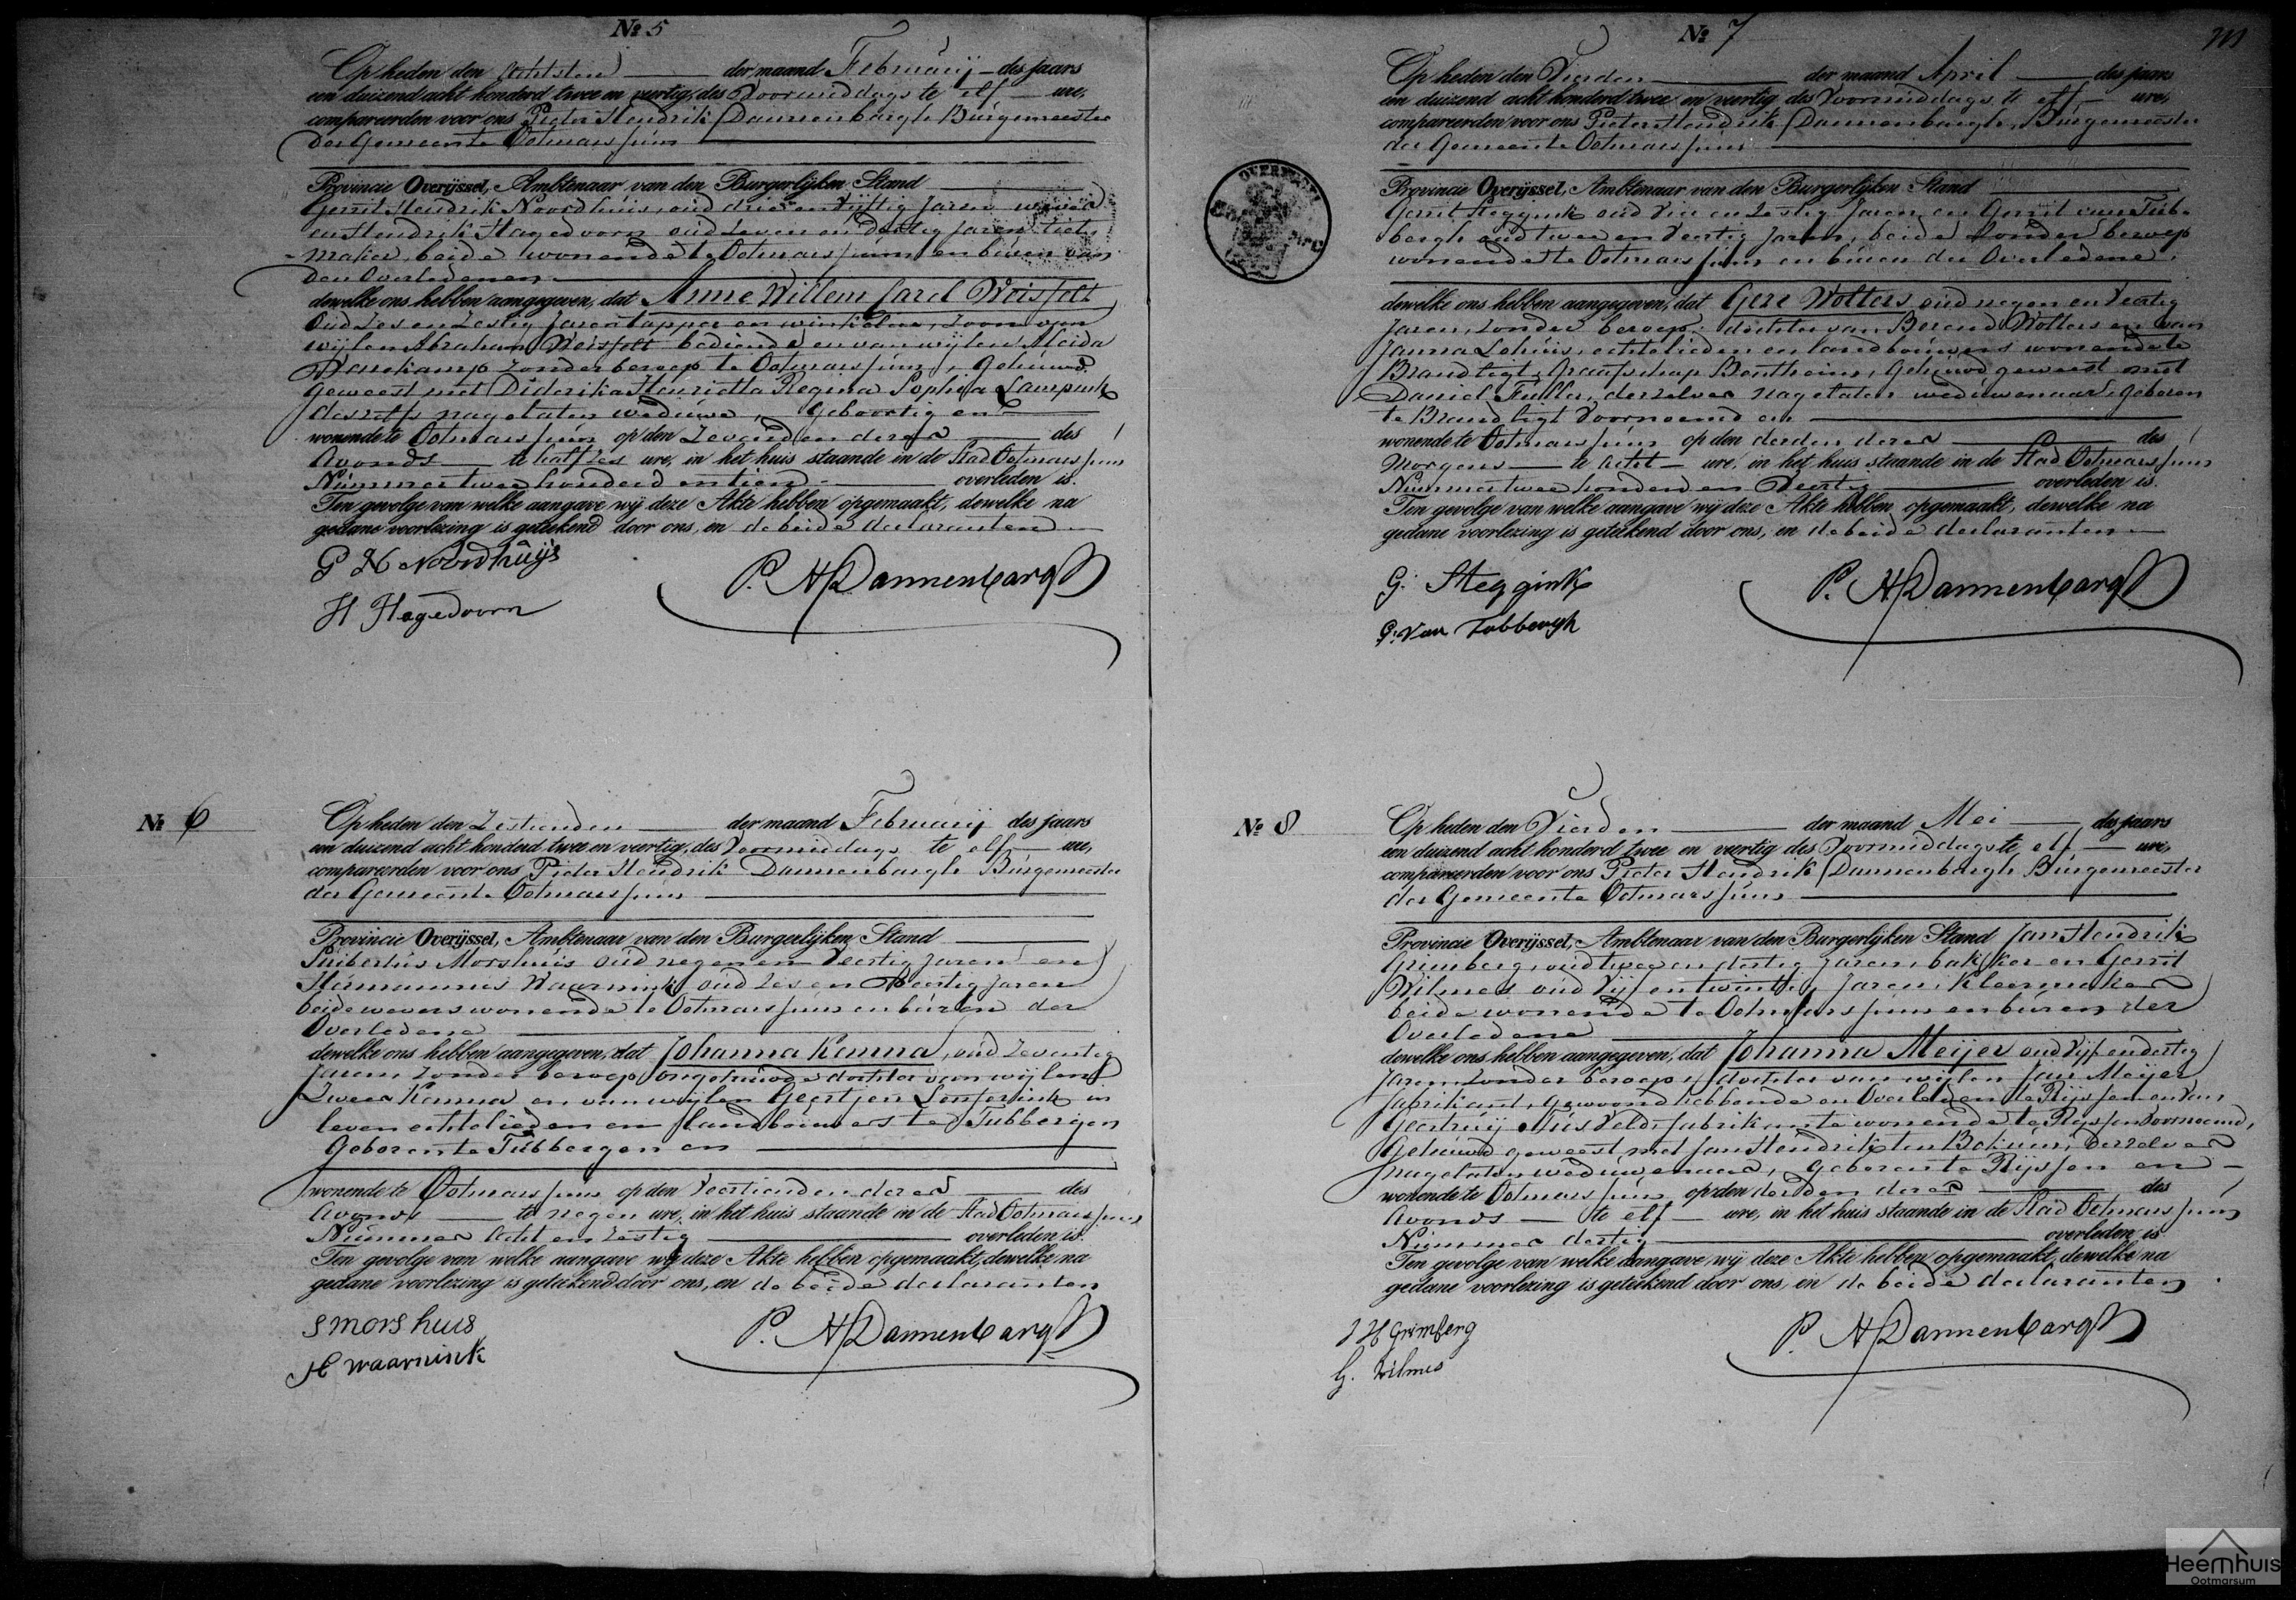 № 5
Op heden den achtsten der maand Februarij des jaars
een duizend acht honderd twee en veertig, des Voormiddags te elf ure,
compareerden voor ons Pieter Hendrik Dannenbargh Burgemeester
der Gemeente Ootmarssum
Provincie Overijssel, Ambtenaar van den Burgerlijken Stand
Gerrit Hendrik Noordhuis, oud drie en Vijftig Jaren
en Hendrik Hagedoorn oud Zeven en dertig Jaren
maker, beide wonende te Ootmarssum en buren van
den Overledenen
dewelke ons hebben aangegeven, dat Anne Willem Carel Weisfelt
Oud Zes en Zestig Jaren tapper en winkelier, Zoon van
wijlen Abraham Weisfelt bediende en van wijlen Aleida
zonder beroep te Ootmarssum, Gehuwd
geweest met Diderika Henrietta Regina Sophia Lampink
deszelfs nagelaten weduwe, geboortig en
wonende te Ootmarssum op den Zevenden dezer des
Avonds te half zes ure, in het huis staande in de Stad Ootmarssum
Nummer twee honderd en tien overleden is.
Ten gevolge van welke aangave wij deze Akte hebben opgemaakt, dewelke na
gedane voorlezing is geteekend door ons, en de beide declaranten
G H Noordhuijs
P. H Dannenbargh
H Hagedoorn
№ 6
Op heden den Zestienden der maand Februarij des jaars
een duizend acht honderd twee en veertig, des Voormiddags te elf ure,
compareerden voor ons Pieter Hendrik Dannenbargh Burgemeester
der Gemeente Ootmarssum
Provincie Overijssel, Ambtenaar van den Burgerlijken Stand
Suibertus Morshuis oud negen en Veertig Jaren en
Hermannus Waarnink oud Zes en Veertig Jaren
beide wevers wonende te Ootmarssum en buren der
Overledene
dewelke ons hebben aangegeven, dat Johanna Kemna, oud Zeventig
Jaren Zonder beroep ongehuwde dochter van wijlen
Zweer Kemna en van wijlen Geertjen in
leven echtelieden en landbouwers te Tubbergen
Geboren te Tubbergen en
wonende te Ootmarssum op den Veertienden dezer des
Avonds te negen ure, in het huis staande in de Stad Ootmarssum
Nummer Acht en Zestig overleden is.
Ten gevolge van welke aangave wij deze Akte hebben opgemaakt, dewelke na
gedane voorlezing is geteekend door ons, en de beide declaranten
S Morshuis
P. H Dannenbargh
H Waarnink
№ 7
Op heden den Vierden der maand April des jaars
een duizend acht honderd twee en veertig des Voormiddags te elf ure,
compareerden voor ons Pieter Hendrik Dannenbargh, Burgemeester
der Gemeente Ootmarssum
Provincie Overijssel, Ambtenaar van den Burgerlijken Stand
Gerrit Steggink oud Vier en Zestig Jaren en Gerrit van Tub-
bergh oud twee en Veertig Jaren, beide Zonder beroep
wonende te Ootmarssum en buren der Overledene,
dewelke ons hebben aangegeven, dat Gese Wolters oud negen en Veertig
Jaren, zonder beroep, dochter van Berend Wolters en van
Janna Lohuis, echtelieden en landbouwers wonende te
Brandligt, Graafschap Bentheim, Gehuwd geweest met
Daniel Fuller, derzelver nagelaten weduwenaar, geboren
te Brandligt voornoemd en
wonende te Ootmarssum op den derden dezer des
Morgens te acht ure, in het huis staande in de Stad Ootmarssum
Nummer twee honderd en Veertig overleden is.
Ten gevolge van welke aangave wij deze Akte hebben opgemaakt, dewelke na
gedane voorlezing is geteekend door ons, en de beide declaranten
G: Steggink
P. H Dannenbargh
G: Van Tubbergh
№ 8
Op heden den Vierden der maand Mei des jaars
een duizend acht honderd twee en veertig des Voormiddags te elf ure,
compareerden voor ons Pieter Hendrik Dannenbargh Burgemeester
der Gemeente Ootmarssum
Provincie Overijssel, Ambtenaar van den Burgerlijken Stand Jan Hendrik
Grimberg, oud twee en dertig Jaren, bakker en Gerrit
Wilmes oud Vijf en twintig Jaren, Kleermaker
beide wonende te Ootmarssum en buren der
Overledene
dewelke ons hebben aangegeven, dat Johanna Meijer oud Vijf en dertig
Jaren Zonder beroep, dochter van wijlen Jan Meijer
fabrikant, gewoond hebbende en Overleden te Rijssen en van
Geertruij fabrikante wonende te Rijssen Voornoemd,
Gehuwd geweest met Jan Hendrik ten derzelver
nagelaten weduwenaar, geboren te Rijssen en
wonende te Ootmarssum op den derden dezer des
Avonds te elf ure, in het huis staande in de Stad Ootmarssum
Nummer dertig overleden is
Ten gevolge van welke aangave wij deze Akte hebben opgemaakt, dewelke na
gedane voorlezing is geteekend door ons, en de beide declaranten
J H Grimberg
P. H Dannenbargh
G. Wilmes
OVERYSSEL
Heemhuis
Ootmarsum